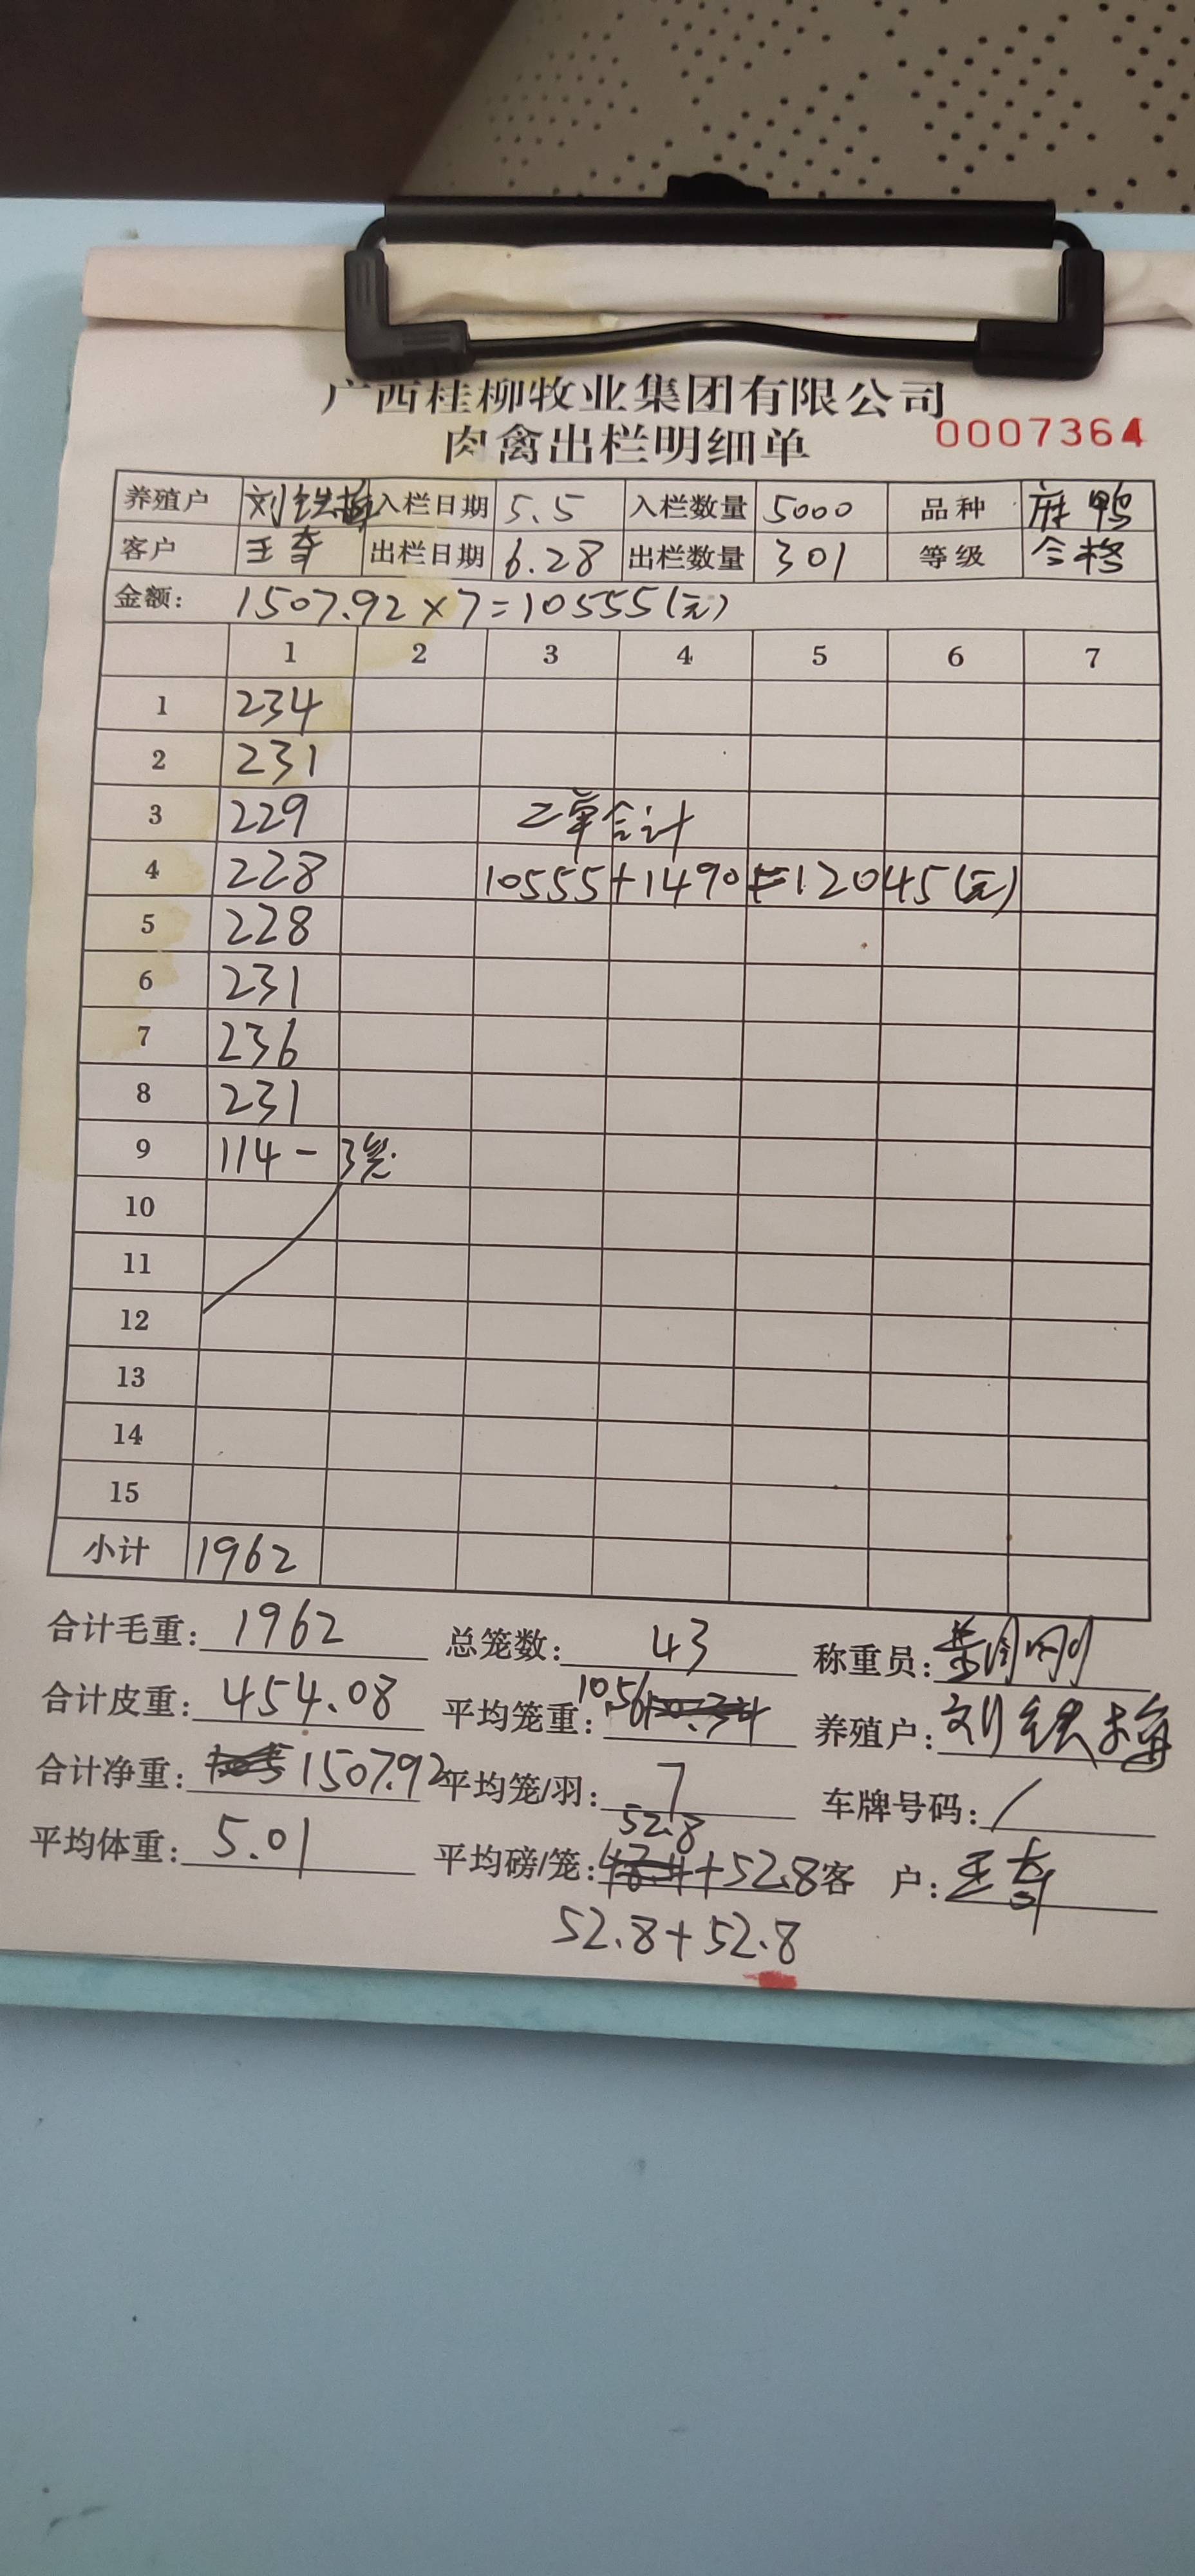 广西桂柳牧业集团有限公司
肉禽出栏明细单 0007364
养殖户 刘铁梅 入栏日期 5.5 入栏数量 5000 品种 麻鸭
客户 王奇 出栏日期 6.28 出栏数量 301 等级 合格
金额: 1507.92×7=10555(元)
1 2 3 4 5 6 7
1 234
2 231
3 229 二单合计
4 228 10555+1490=12045(元)
5 228
6 231
7 236
8 231
9 114-3笼
10
11
12
13
14
15
小计 1962
合计毛重: 1962 总笼数: 43 称重员:
合计皮重: 454.08 平均笼重: 10.56 养殖户: 刘铁梅
合计净重: 1507.92 平均笼/羽: 7 车牌号码: /
平均体重: 5.01 平均磅/笼: 52.8+52.8 客 户: 王奇
52.8+52.8